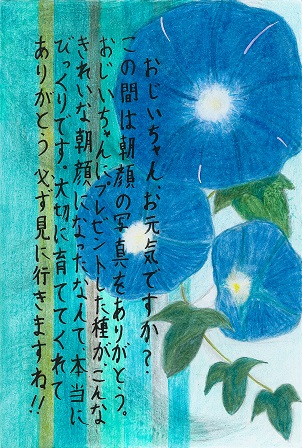 おじいちゃん、お元気ですか？
この間は朝顔の写真をありがとう。
おじいちゃんにプレゼントした種が、こんな
きれいな朝顔になったなんて本当に
びっくりです。大切に育ててくれて
ありがとう 必ず見に行きますね!!